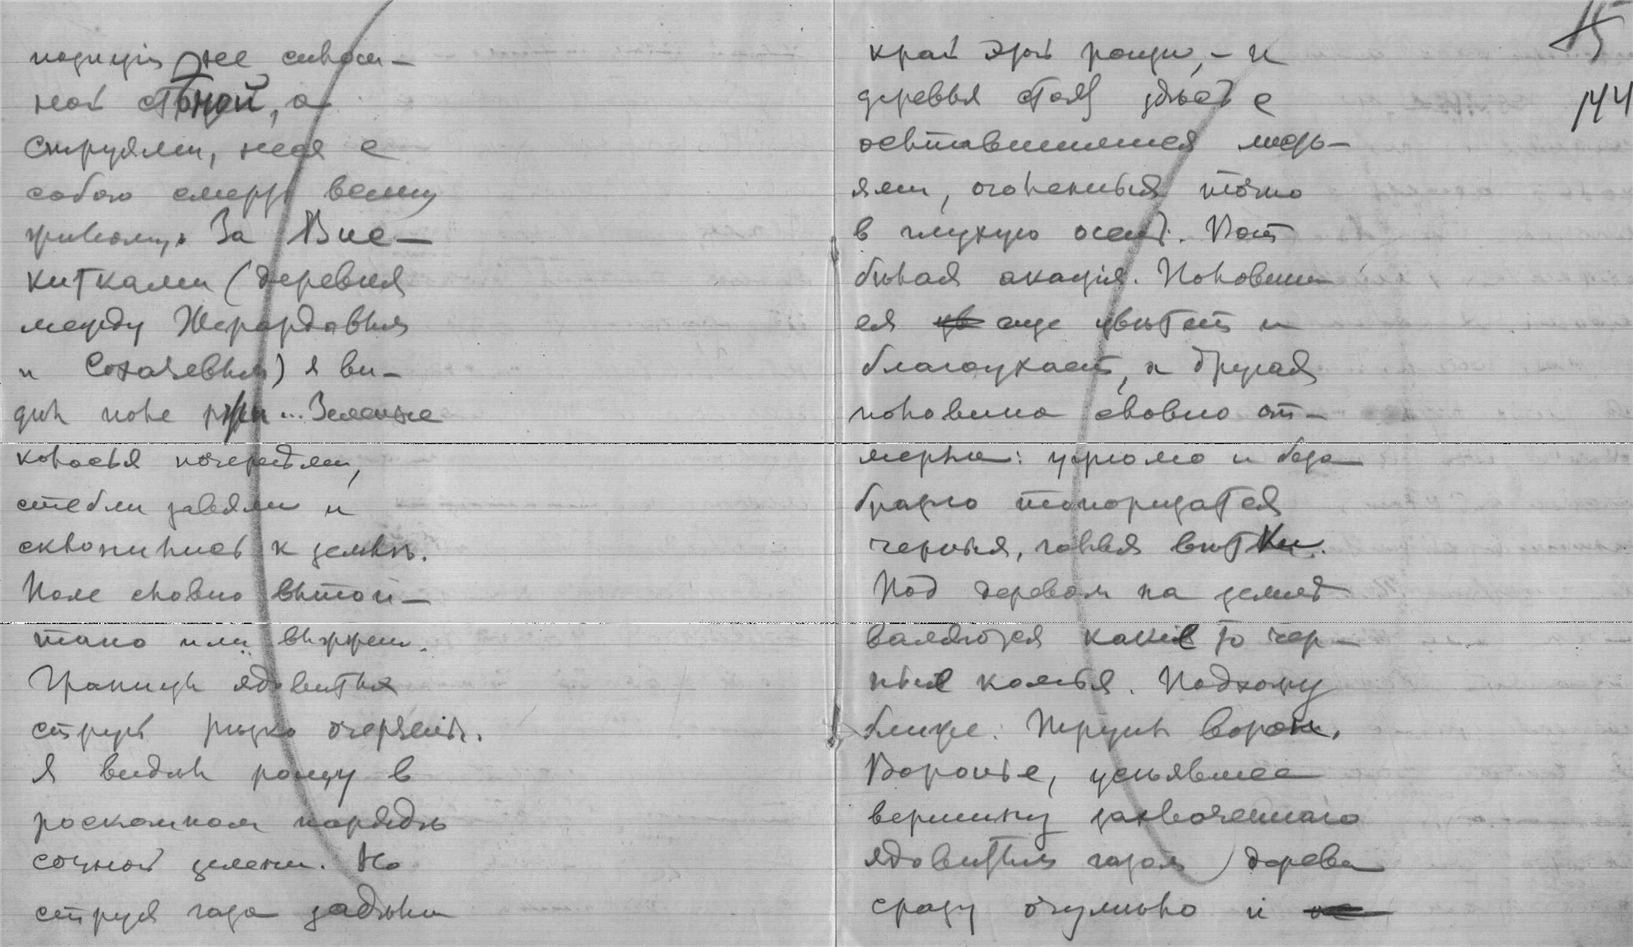 позиціи не сплош-
ной стѣной, а
струями, неся с
собою смерть всему
живому. За Вис-
китками (деревня
между Жерардовым
и Сохачевым) я ви-
дѣл поле ржи... Зеленые
колосья почернѣли,
стебли завяли и
склонились к землѣ.
Поле словно вытоп-
тано или выжжено.
Границы ядовитых
струй рѣзко очерчены.
Я видѣл рощу в
роскошном нарядѣ
сочной зелени. Но
струя газа задѣла
край этой рощи, – и
деревья стоят здѣсь с
оставшимися листь-
ями, оголенныя точно
в глухую осень. Вот
бѣлая акація. Половина
ея еще цвѣтет и
благоухает, а другая
половина словно от-
мерла: угрюмо и безо
бразно топорщатся
черныя, голыя вѣтки.
Под деревом на землѣ
валяются какіе то чер-
ные комья. Подхожу
ближе. Трупы ворон.
Воронье, усѣявшее
вершину захваченнаго
ядовитым газом дерева
сразу очумѣло и
15
144